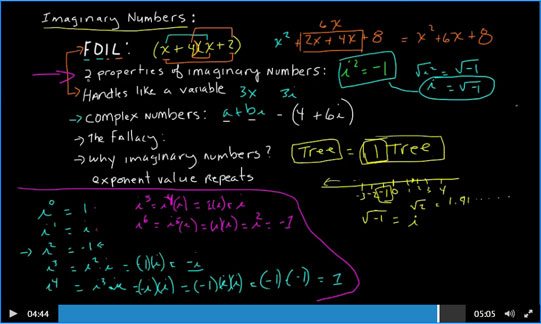 Imaginary Numbers:
FOIL: (x + 4)(x + 2)
6x
x² + 2x + 4x + 8 = x² + 6x + 8
→ 2 properties of imaginary numbers: i² = -1
√i² = √-1
i = √-1
→ Handles like a variable 3x 3i
→ Complex numbers: a + bi - (4 + 6i)
→ The Fallacy:
→ Why imaginary numbers?
exponent value repeats
Tree = 1 Tree
-3 -2 -1 0 1 2 3 4
√2 = 1.91......
√-1 = i
i⁰ = 1
i¹ = i
→ i² = -1
i³ = i²·i = (1)(i) = -i
i⁴ = i³·i = (-i)(i) = (-1)(i)(i) = (-1)(-1) = 1
i⁵ = i⁴(i) = 1(i) = i
i⁶ = i⁵(i) = (i)(i) = i² = -1
04:44
05:05